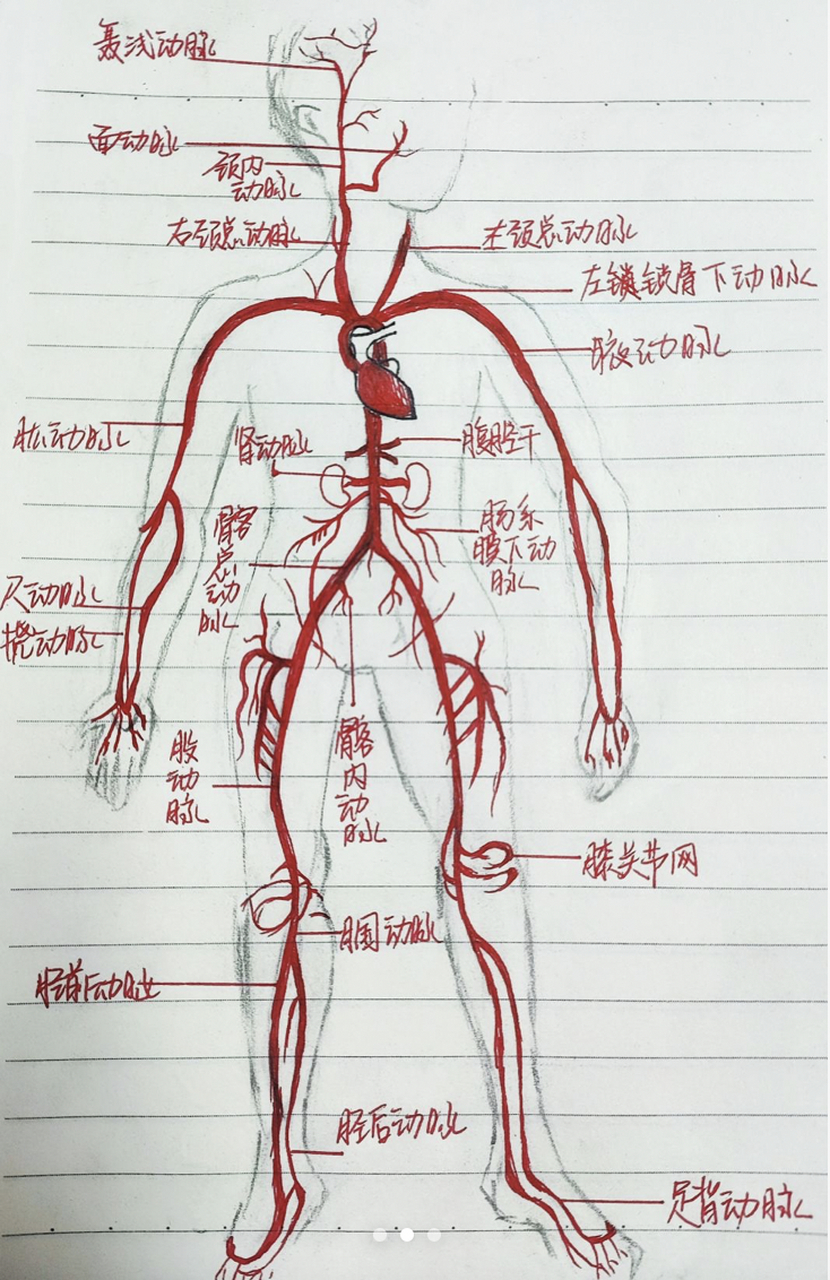 颞浅动脉
面动脉
颈内
动脉
右颈总动脉
左颈总动脉
左锁骨下动脉
腋动脉
肱动脉
肾动脉
腹腔干
髂
总
动
脉
肠系
膜下动
脉
尺动脉
桡动脉
股
动
脉
髂
内
动
脉
膝关节网
腘动脉
胫前动脉
胫后动脉
足背动脉